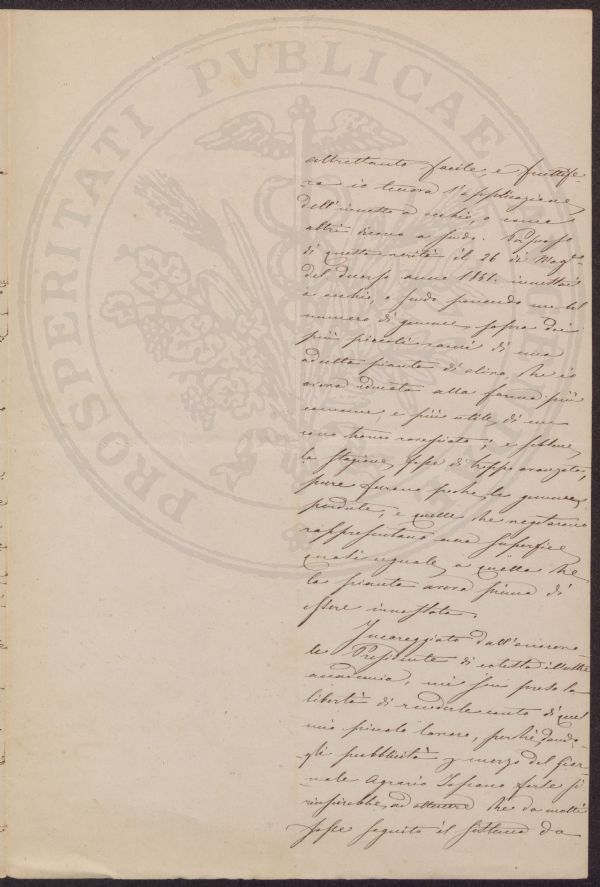 PROSPERITATI PVBLICAE
altrettanto facile, e fruttife-
ra io teneva l'applicazione
dell'innesto a occhio, o come
altri dicono a scudo. Persuaso
di questa verità il 26 di Magg.o
del decorso anno 1851. innestai
a occhio, o scudo ponendo un bel
numero di gemme sopra dei
più piccoli rami di una
adulta pianta di olivo, che io
aveva educata alla forma più
comune e più utile, di un
cono tronco rovesciato; e sebbene
la stagione fosse di troppo avanzata,
pure furono poche le gemme
perdute; e quelle che vegetarono
rappresentano una superficie
quasi uguale, a quella che
la pianta aveva prima di
essere innestata.
Incoraggiato dall'onorevo-
le Presidente di cotesta illustre
accademia, mi son preso la
libertà di renderle conto di quel
mio piccolo lavoro, perchè dando-
gli pubblicità p mezzo del Gior-
nale Agrario Toscano forse si
riuscirebbe ad ottenere che da molti
fosse seguito il sistema da